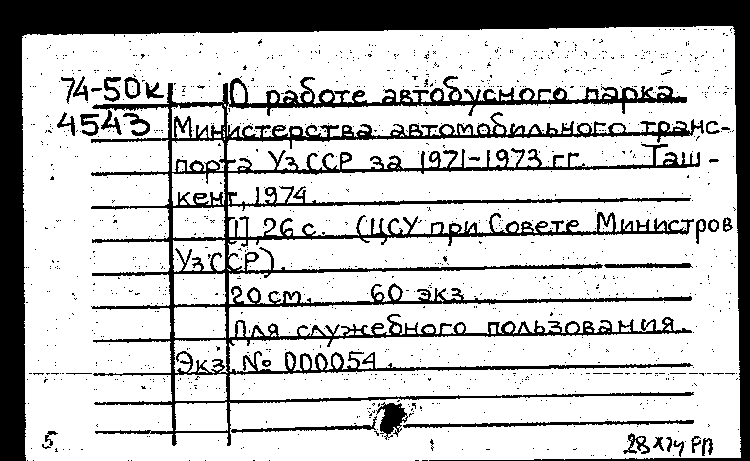 74-50к О работе автобусного парка
4543 Министерства автомобильного транс-
порта УзССР за 1971-1973 гг. Таш-
кент, 1974.
[1], 26 с. (ЦСУ при Совете Министров
УзССР).
20 см. 60 экз.
Для служебного пользования.
Экз. № 000054.
5. 28 X 74 РП